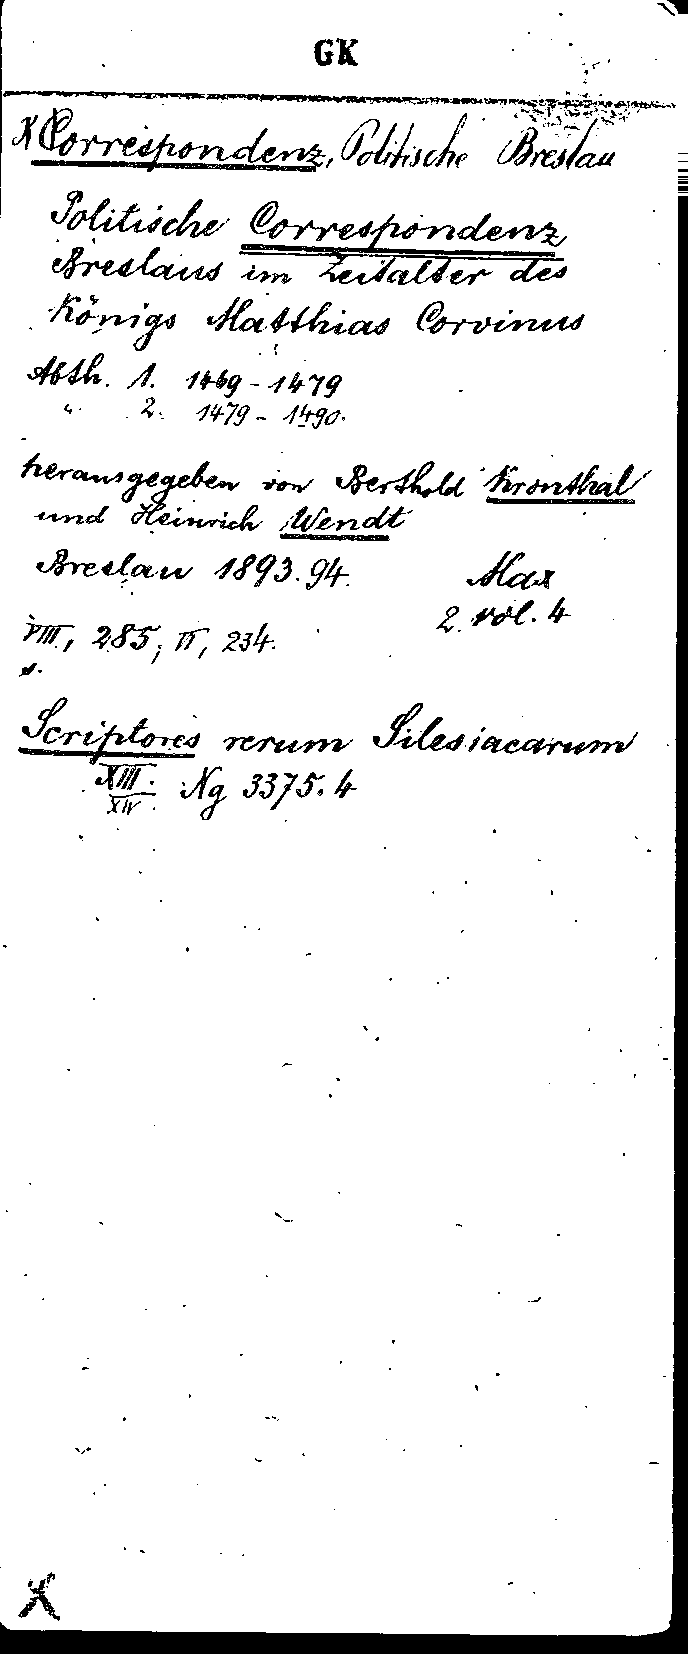 GK
X Correspondenz, Politische Breslau
Politische Correspondenz
Breslaus im Zeitalter des
Königs Matthias Corvinus
Abth. 1. 1469-1479
" 2. 1479-1490.
herausgegeben von Berthold Kronthal
und Heinrich Wendt
Breslau 1893.94.
Max
2 vol. 4
VIII, 285; II, 234.
s.
Scriptores rerum Silesiacarum
XIII. Ng 3375.4
XIV
X